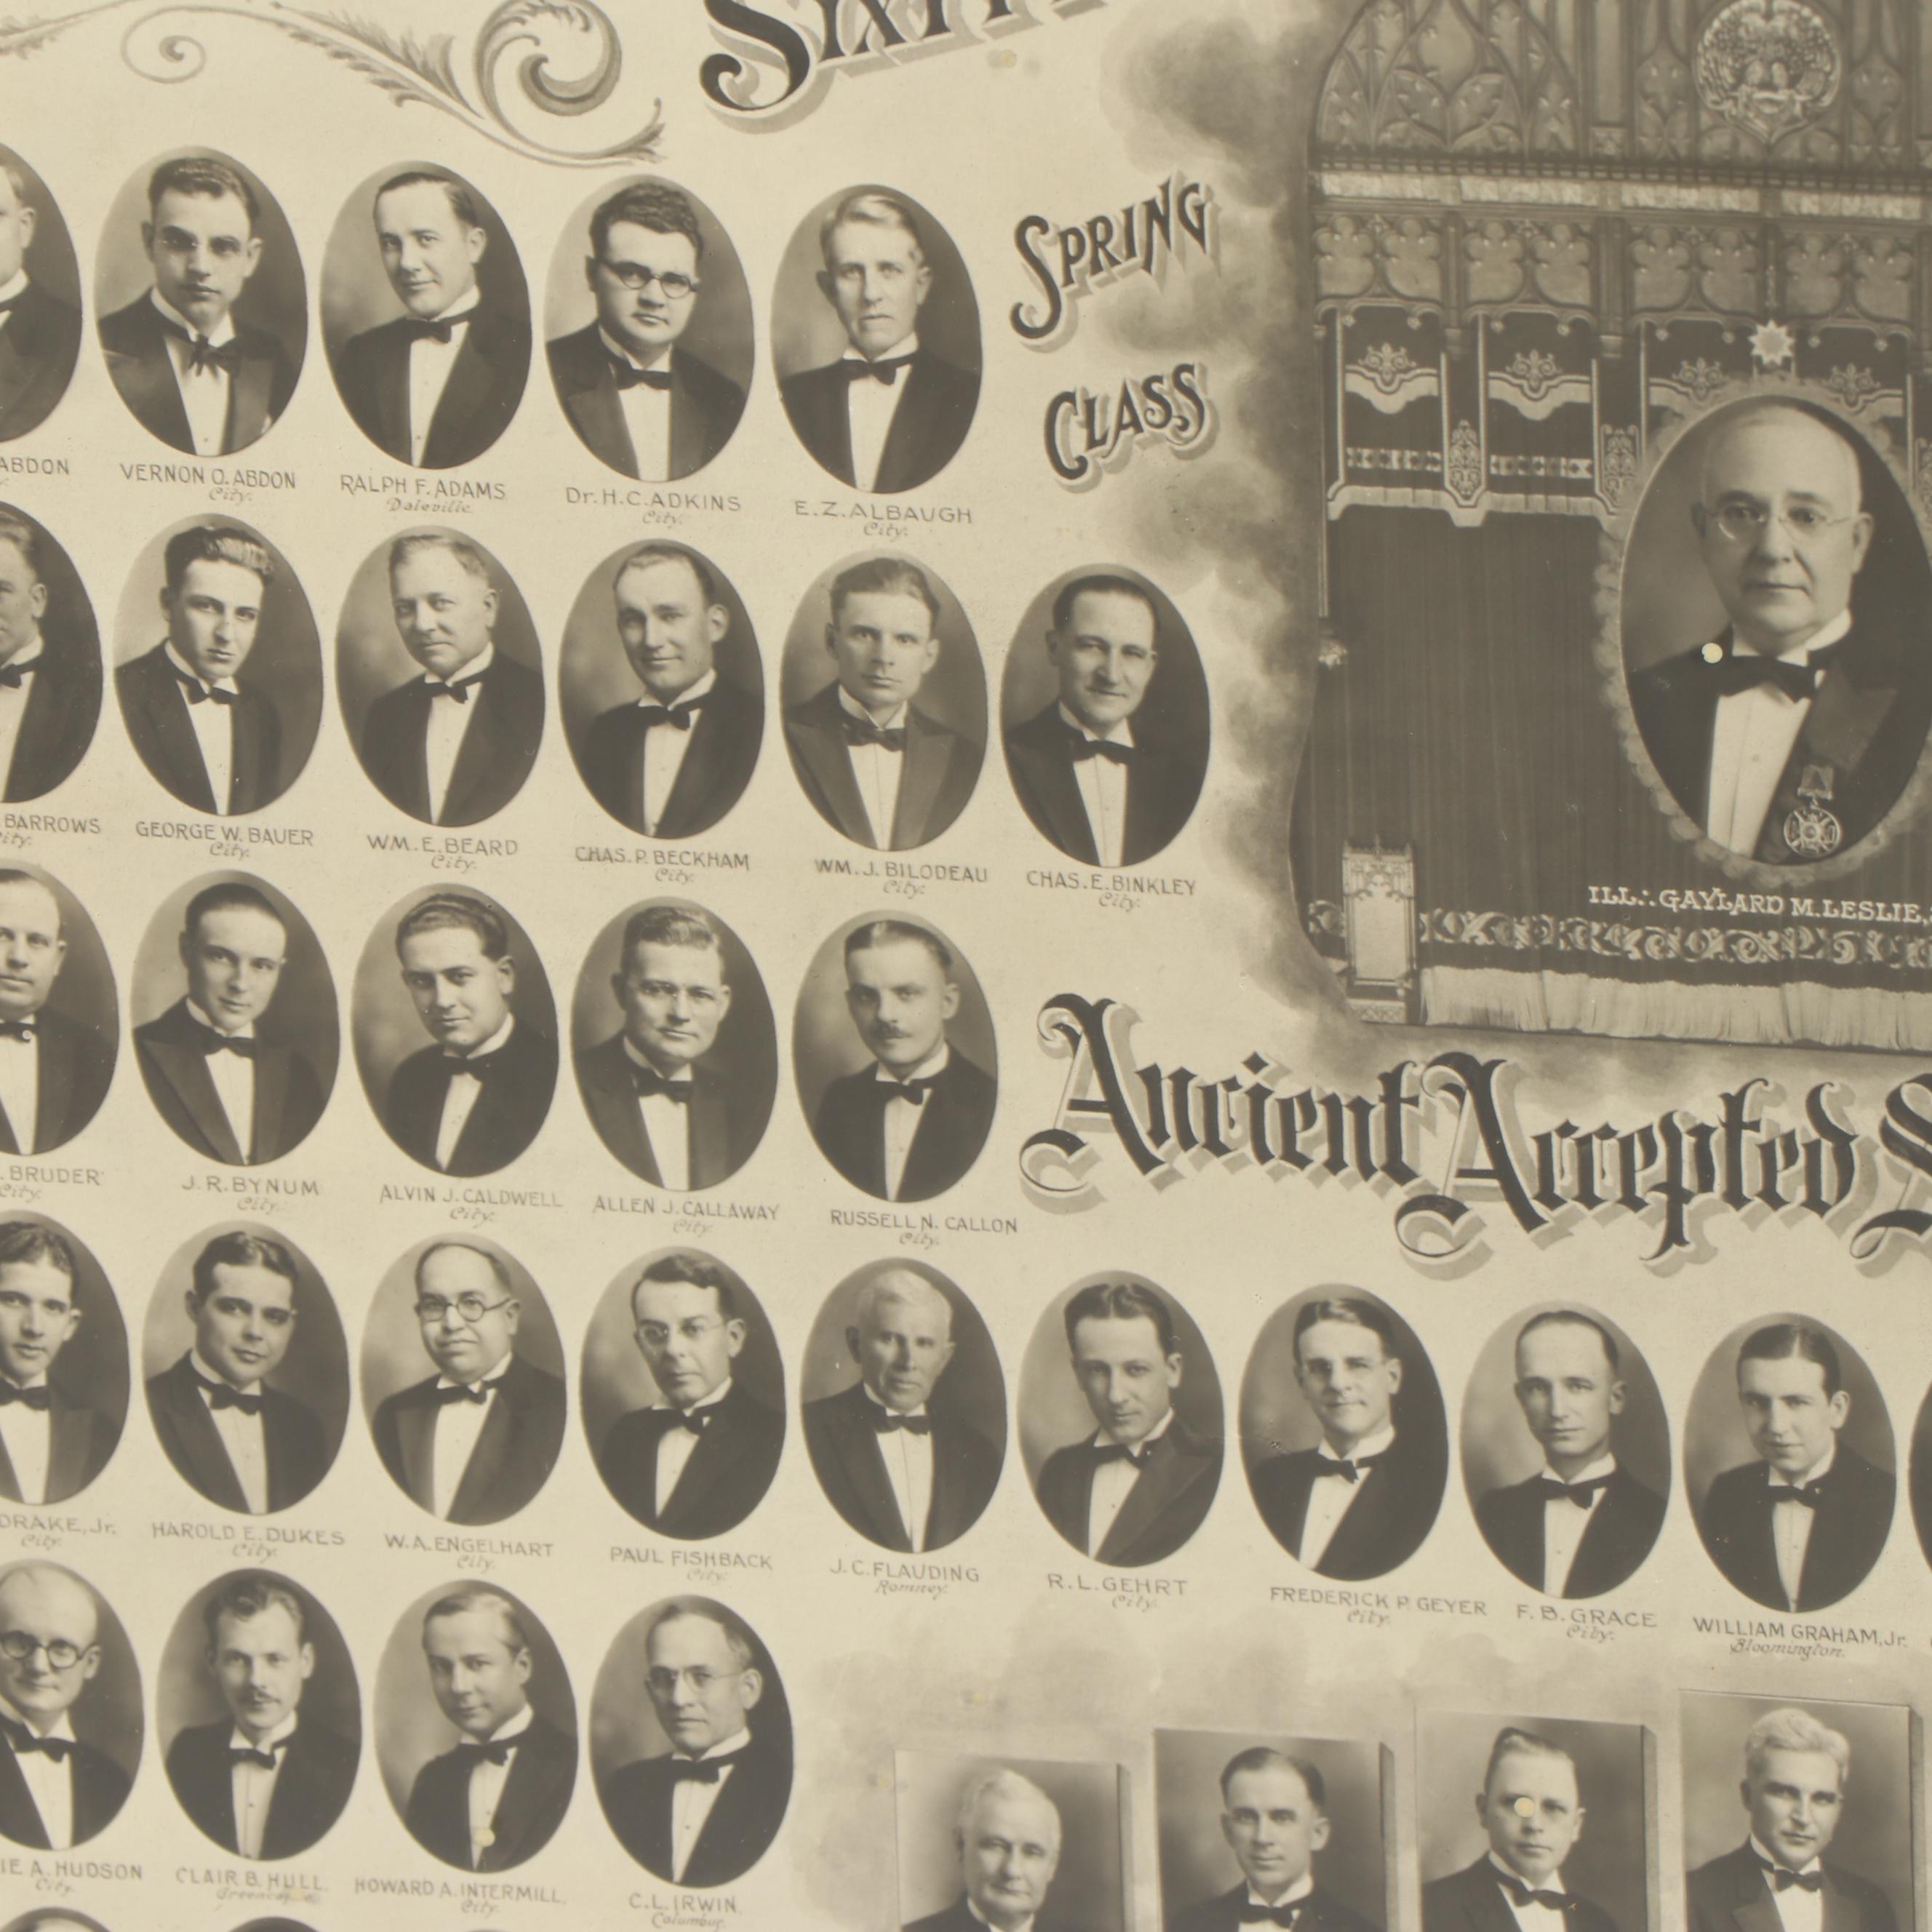 SPRING
CLASS
ABDON
VERNON O. ABDON
City.
RALPH F. ADAMS
Daleville.
Dr. H. C. ADKINS
City.
E. Z. ALBAUGH
City.
BARROWS
City.
GEORGE W. BAUER
City.
WM. E. BEARD
City.
CHAS. P. BECKHAM
City.
WM. J. BILODEAU
City.
CHAS. E. BINKLEY
City.
ILL∴ GAYLARD M. LESLIE,
Ancient Accepted S
. BRUDER
City.
J. R. BYNUM
City.
ALVIN J. CALDWELL
City.
ALLEN J. CALLAWAY
City.
RUSSELL N. CALLON
City.
DRAKE, Jr.
City.
HAROLD E. DUKES
City.
W. A. ENGELHART
City.
PAUL FISHBACK
City.
J. C. FLAUDING
Romney.
R. L. GEHRT
City.
FREDERICK P. GEYER
City.
F. B. GRACE
City.
WILLIAM GRAHAM, Jr.
Bloomington.
IE A. HUDSON
City.
CLAIR B. HULL
HOWARD A. INTERMILL
City.
C. L. IRWIN
Columbus.